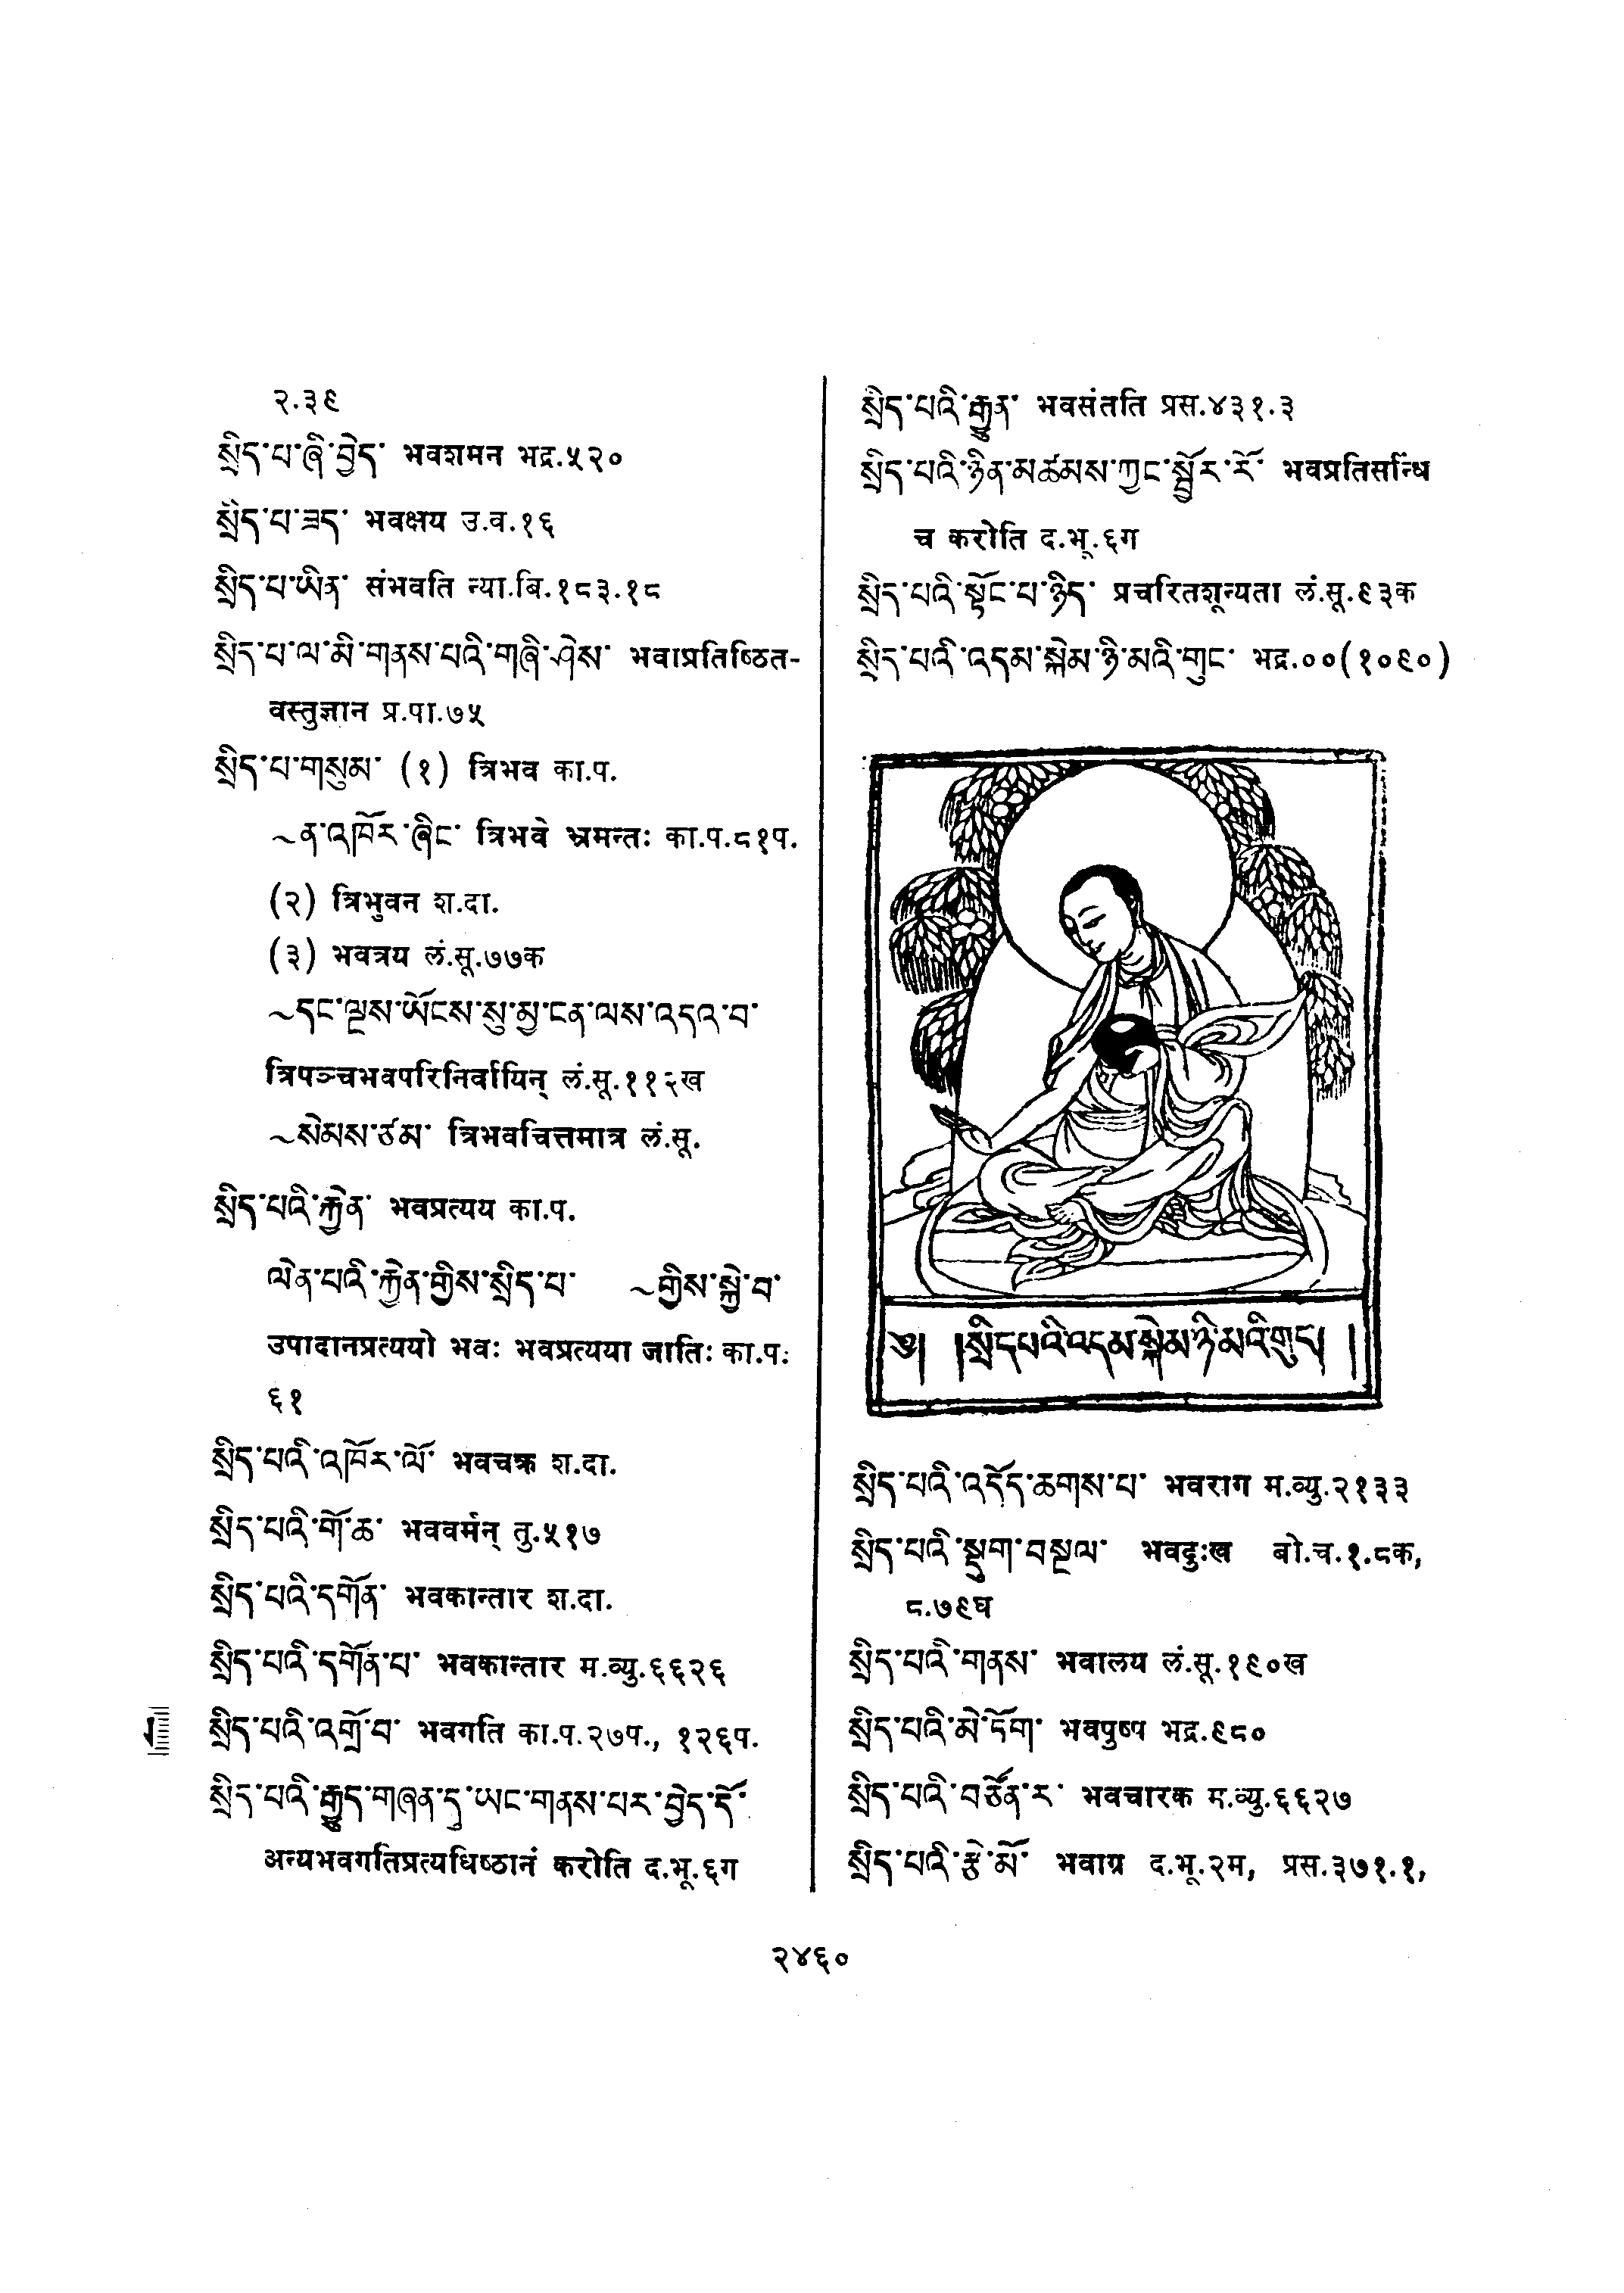 २.३९
སྲིད་པ་ཞི་བྱེད་ भवशमन भद्र.५२०
སྲིད་པ་ཟད་ भवक्षय उ.व.१६
སྲིད་པ་ཡིན་ संभवति न्या.बि.१८३.१८
སྲིད་པ་ལ་མི་གནས་པའི་གཞི་ཤེས་ भवाप्रतिष्ठित-
वस्तुज्ञान प्र.पा.७५
སྲིད་པ་གསུམ་ (१) त्रिभव का.प.
~ན་འཁོར་ཞིང་ त्रिभवे भ्रमन्तः का.प.८१प.
(२) त्रिभुवन श.दा.
(३) भवत्रय लं.सू.७७क
~དང་ལྔས་ཡོངས་སུ་མྱ་ངན་ལས་འདའ་བ་
त्रिपञ्चभवपरिनिर्वायिन् लं.सू.११२ख
~སེམས་ཙམ་ त्रिभवचित्तमात्र लं.सू.
སྲིད་པའི་རྐྱེན་ भवप्रत्यय का.प.
ལེན་པའི་རྐྱེན་གྱིས་སྲིད་པ་ ~གྱིས་སྐྱེ་བ་
उपादानप्रत्ययो भवः भवप्रत्यया जातिः का.प.
६१
སྲིད་པའི་འཁོར་ལོ་ भवचक्र श.दा.
སྲིད་པའི་གོ་ཆ་ भववर्मन् तु.५१७
སྲིད་པའི་དགོན་ भवकान्तार श.दा.
སྲིད་པའི་དགོན་པ་ भवकान्तार म.व्यु.६६२६
སྲིད་པའི་འགྲོ་བ་ भवगति का.प.२७प., १२६प.
སྲིད་པའི་རྒྱུད་གཞན་དུ་ཡང་གནས་པར་བྱེད་དོ་
अन्यभवगतिप्रत्यधिष्ठानं करोति द.भू.६ग
སྲིད་པའི་རྒྱུན་ भवसंतति प्रस.४३१.३
སྲིད་པའི་ཉིན་མཚམས་ཀྱང་སྦྱོར་རོ་ भवप्रतिसन्धिं
च करोति द.भू.६ग
སྲིད་པའི་སྟོང་པ་ཉིད་ प्रचरितशून्यता लं.सू.९३क
སྲིད་པའི་འདམ་སྐེམ་ཉི་མའི་གུང་ भद्र.००(१०९०)
༄། །སྲིད་པའི་འདམ་སྐེམ་ཉི་མའི་གུང། །
སྲིད་པའི་འདོད་ཆགས་པ་ भवराग म.व्यु.२१३३
སྲིད་པའི་སྡུག་བསྔལ་ भवदुःख बो.च.१.८क,
८.७९घ
སྲིད་པའི་གནས་ भवालय लं.सू.१९०ख
སྲིད་པའི་མེ་ཏོག་ भवपुष्प भद्र.९८०
སྲིད་པའི་བཙོན་ར་ भवचारक म.व्यु.६६२७
སྲིད་པའི་རྩེ་མོ་ भवाग्र द.भू.२म, प्रस.३७१.१,
२४६०